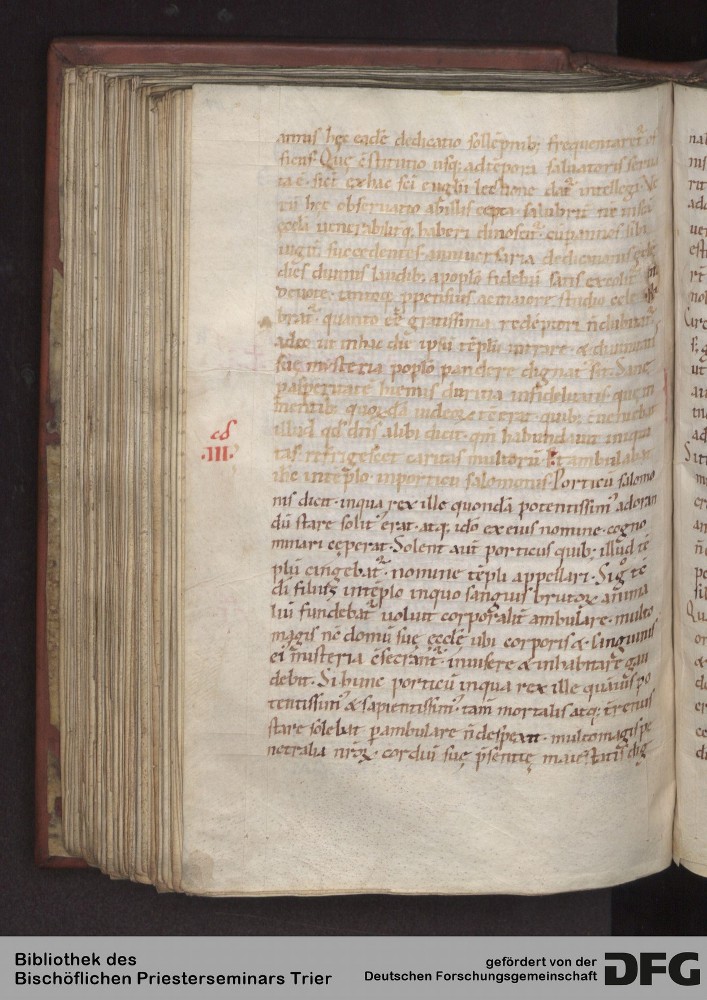 annis hęc eadē dedicatio sollēpnib; frequentaret᷑
ficens Quę ēstitutio usq; ad tēpora saluatoris serua
ta ē sicī ex hac scī euglii lectione dat᷑ intellegi
rū hęc observatio
ccła venerabilitq; haberi dinoscit᷑
succedentes anniversaria dedicationis
dies diuinis laudib; a poplo fideliū satis excolit᷑
devote ppensius ac maiore studio cele
brat᷑ quanto eē gratissima redēptori n̄ dubitat᷑
adeo ut in hac die ipsū tēplū intrare & diuinitatis
suę misteria poplo pandere dignat᷑ sit Sane
p asperitatē hiemis duritia infidelitatis quę in
mentib; quorūdā iudeorꝝ
illud qd dn̄s alibi dicit qm̄ habundauit iniqui
tas refrigescet caritas multorū Et ambulabat
ihc in tēplo in porticu salomonis Porticū salomo
nis dicit in qua rex ille quondā potentissim᷒ adoran
dū stare solit᷒ erat atq; ido ex eius nomine cogno
minari cęperat Solent aut̄ porticus quib; illud tē
plū cingebat᷑ nomine tēpli appellari Si g̊ tē
di filius in tēplo in quo sanguis brutorꝝ anima
liū fundebat᷑ voluit corporalit᷑ ambulare multo
magis nc̄ domū suę ęcclę ubi corporis & sanguinis
ei᷒ misteria ēsecrant᷑ invisere & inhabitare gau
debit Si hunc porticū in qua rex ille quāuis po
tentissim᷒ & sapientissim᷒ tam̄ mortalis atq; t̄renus
stare solebat pambulare n̄ despexit multo magis pe
netralia nr̄orꝝ cordiū suę p̄sentię maiestatis dig
cō
.III.
Bibliothek des
Bischöflichen Priesterseminars Trier
gefördert von der
Deutschen Forschungsgemeinschaft
DFG